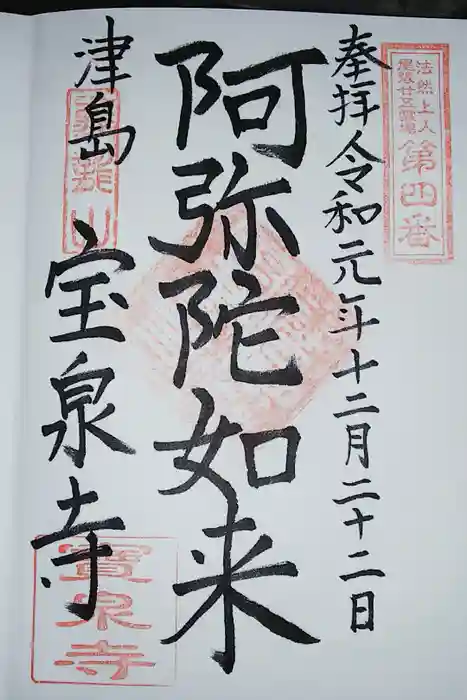 法然上人
尾張廿五霊場
第四番
奉拝 令和元年十二月二十二日
阿弥陀如来
津島 宝泉寺
寳泉寺